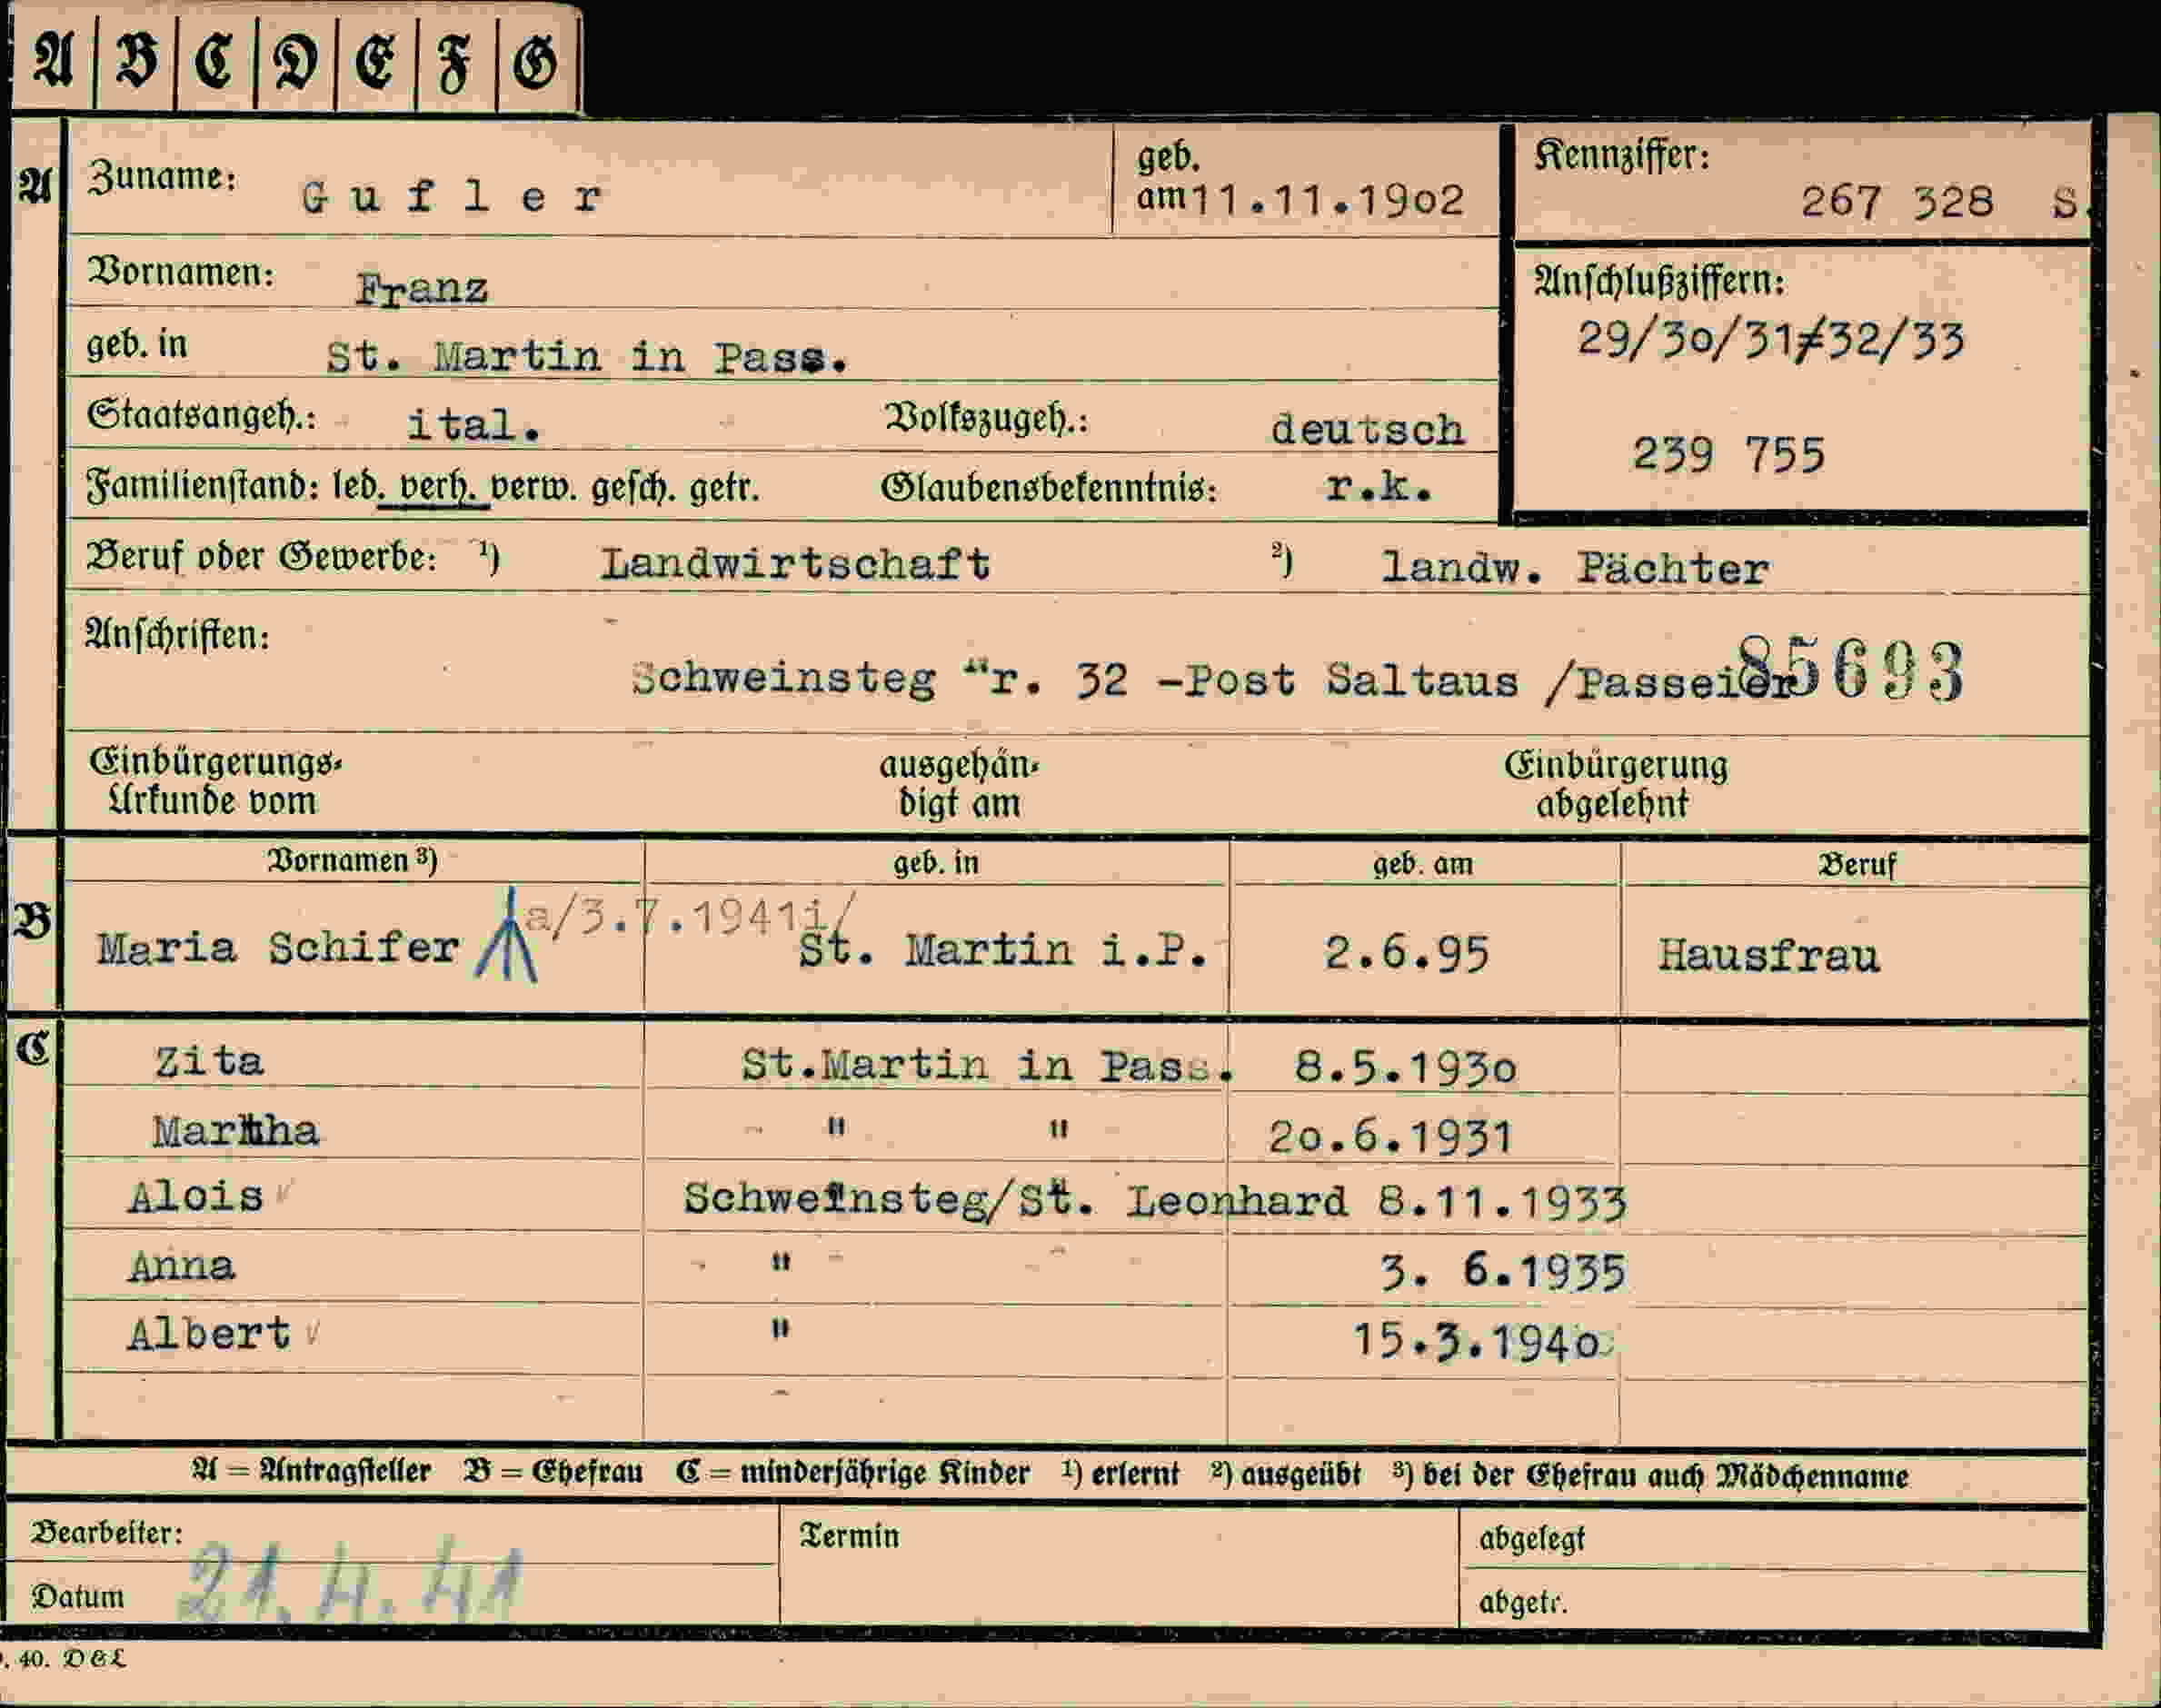 A B C D E F G
A Zuname: Gufler geb. am 11.11.19o2 Kennziffer: 267 328 S.
Vornamen: Franz
Anschlußziffern:
geb. in St. Martin in Pass. 29/3o/31/32/33
Staatsangeh.: ital. Volkszugeh.: deutsch
239 755
Familienstand: led. verh. verw. gesch. getr. Glaubensbekenntnis: r.k.
Beruf oder Gewerbe: 1) Landwirtschaft 2) landw. Pächter
Anschriften:
Schweinsteg Nr. 32 -Post Saltaus /Passeier 85693
Einbürgerungs-Urkunde vom ausgehändigt am Einbürgerung abgelehnt
Vornamen 3) geb. in geb. am Beruf
a/3.7.1941i/
B Maria Schifer St. Martin i.P. 2.6.95 Hausfrau
C Zita St.Martin in Pass. 8.5.193o
Martha " " 2o.6.1931
Alois Schweinsteg/St. Leonhard 8.11.1933
Anna " 3. 6.1935
Albert " 15.3.194o
A = Antragsteller B = Ehefrau C = minderjährige Kinder 1) erlernt 2) ausgeübt 3) bei der Ehefrau auch Mädchenname
Bearbeiter: Termin abgelegt
Datum 21.4.41 abgetr.
. 40. D&L